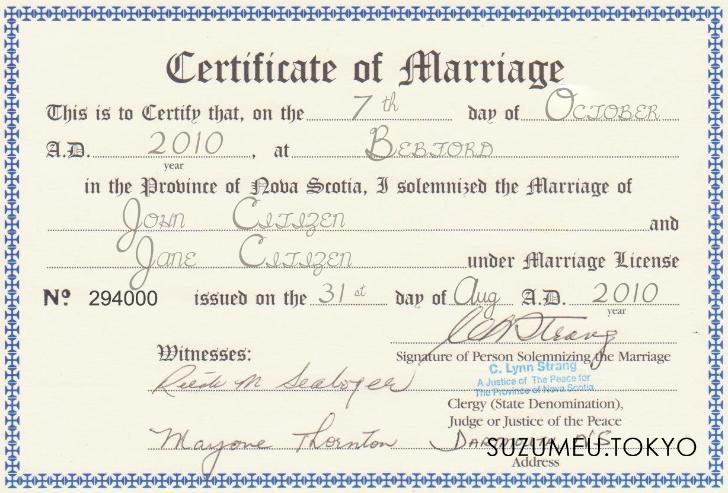 Certificate of Marriage
This is to Certify that, on the 7th day of October
A.D. 2010, at Bebford
year
in the Province of Nova Scotia, I solemnized the Marriage of
John Citizen and
Jane Citizen under Marriage License
Nº 294000 issued on the 31st day of Aug A.D. 2010
year
Strang
Witnesses:
Signature of Person Solemnizing the Marriage
C. Lynn Strang
A Justice of The Peace for
The Province of Nova Scotia
Clergy (State Denomination),
Judge or Justice of the Peace
Marjorie Thornton
SUZUMEU.TOKYO
Address